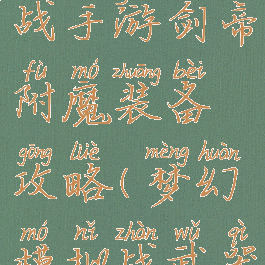 战手游剑帝
fù mó zhuāng bèi
附魔装备
gōng lüè mèng huàn
攻略(梦幻
mó nǐ zhàn wǔ qì
模拟战武器